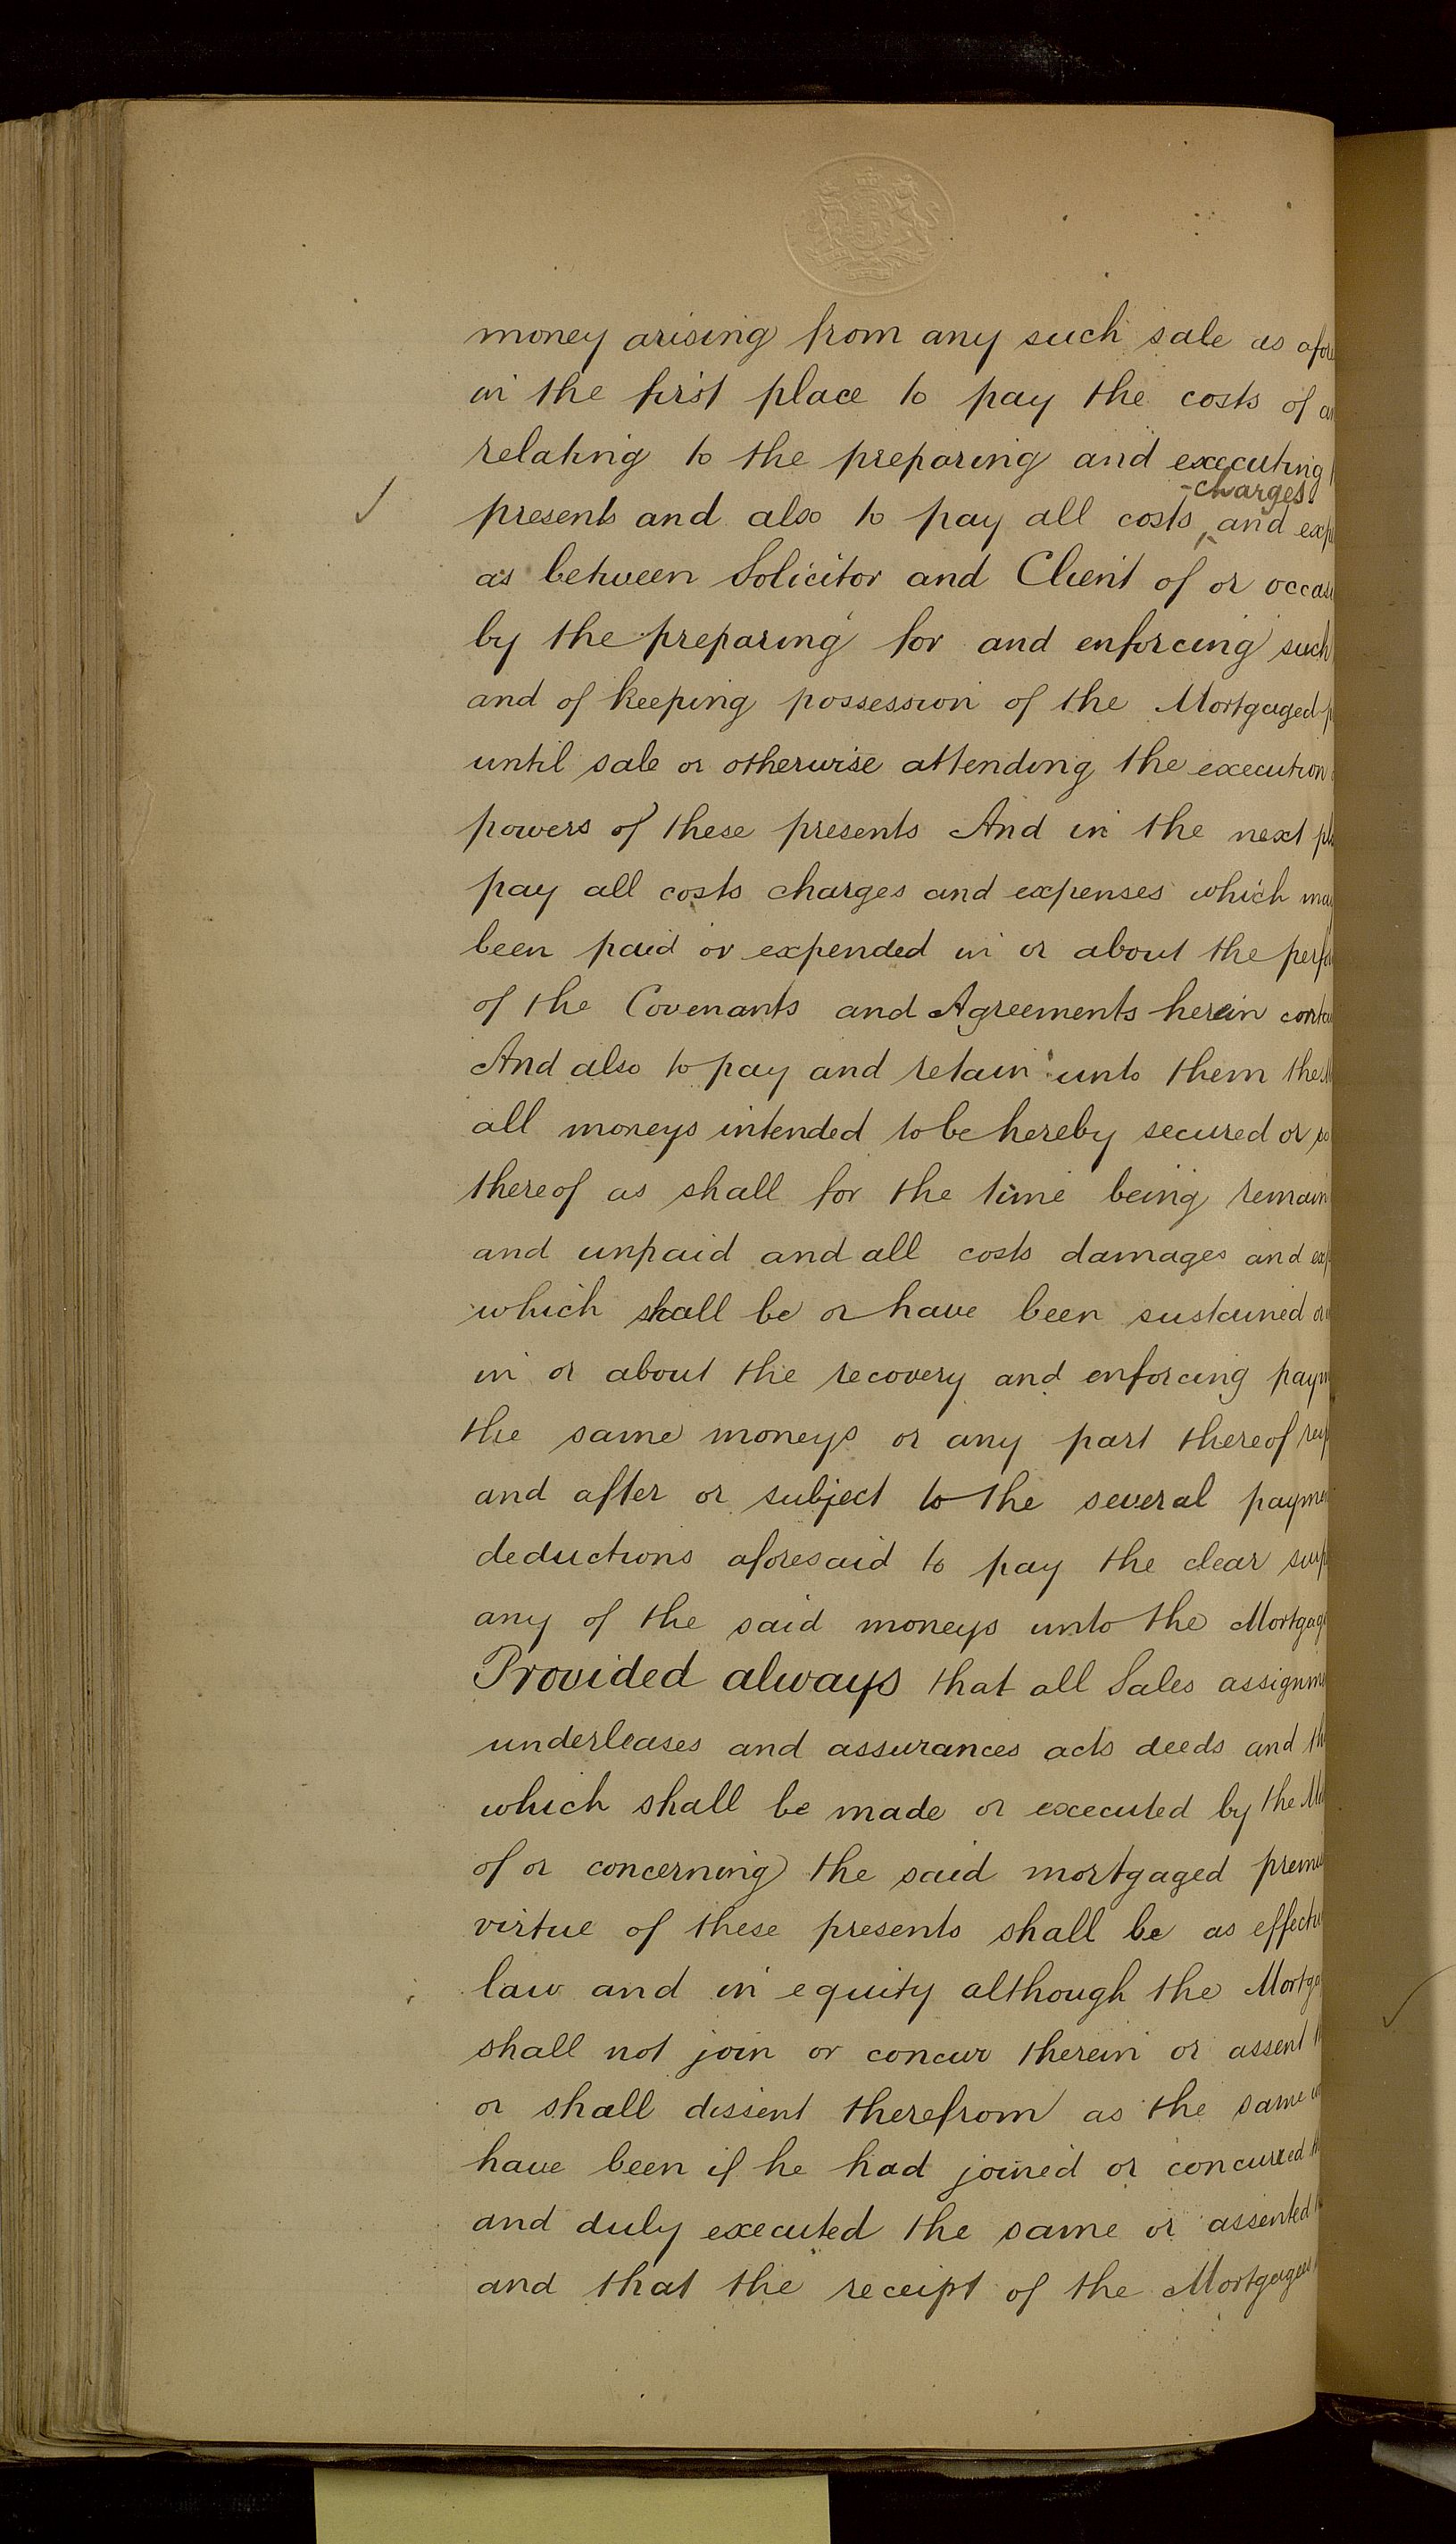 money arising from any such sale as afore
in the first place to pay the costs of an
relating to the preparing and executing
-charges
presents and also to pay all costs ‸ and exp
as between Solicitor and Client of or occasi
by the preparing for and enforcing such
and of keeping possession of the Mortgaged p
until sale or otherwise attending the execution
powers of these presents And in the next pla
pay all costs charges and expenses which may
been paid or expended in or about the perfo
of the Covenants and Agreements herein conta
And also to pay and retain unto them the M
all moneys intended to be hereby secured or so
thereof as shall for the time being remain
and unpaid and all costs damages and exp
which shall be or have been sustained or
in or about the recovery and enforcing paym
the same moneys or any part thereof resp
and after or subject to the several paymen
deductions aforesaid to pay the clear surp
any of the said moneys unto the Mortgag
Provided always that all Sales assignme
underleases and assurances acts deeds and th
which shall be made or executed by the Mo
of or concerning the said mortgaged premis
virtue of these presents shall be as effectu
law and in equity although the Mortga
shall not join or concur therein or assent th
or shall dissent therefrom as the same w
have been if he had joined or concurred th
and duly executed the same or assented th
and that the receipt of the Mortgagees